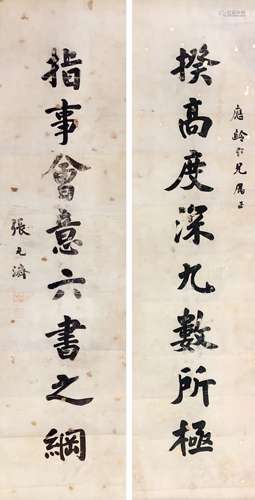 應齡仁兄屬正
揆高度深九數所極
指事會意六書之綱
張元濟